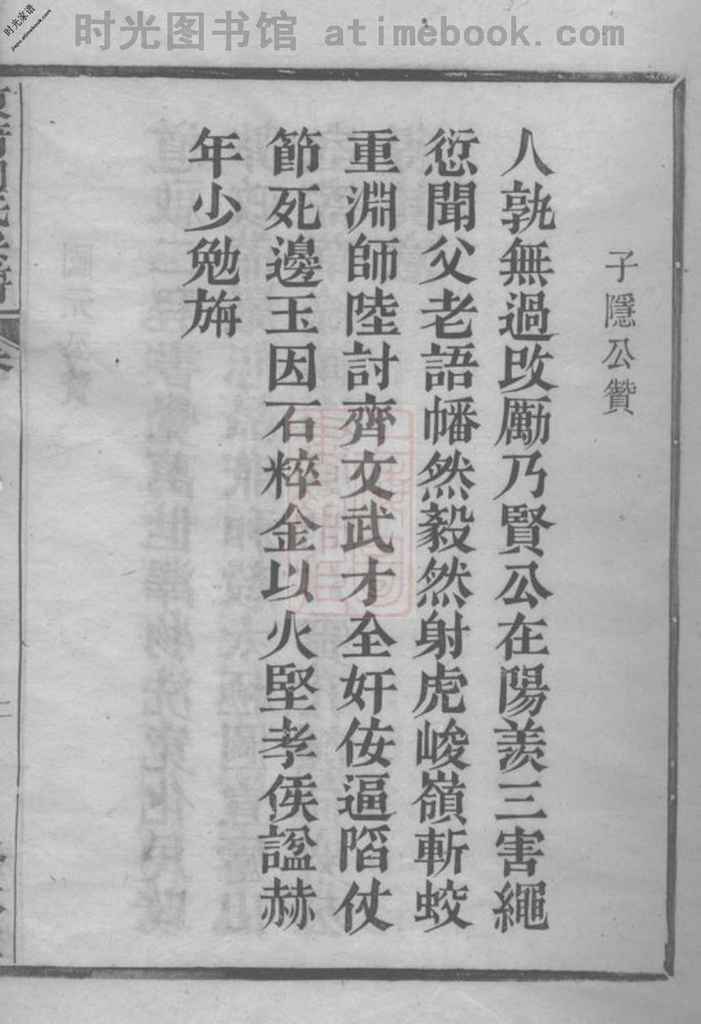 时光家谱
时光图书馆 atimebook.com
子隱公贊
人孰無過改勵乃賢公在陽羨三害繩
愆聞父老語幡然毅然射虎峻嶺斬蛟
重淵師陸討齊文武才全奸佞逼陷仗
節死邊玉因石粹金以火堅孝侯諡赫
年少勉旃